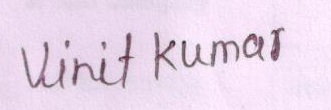 Vinit Kumar